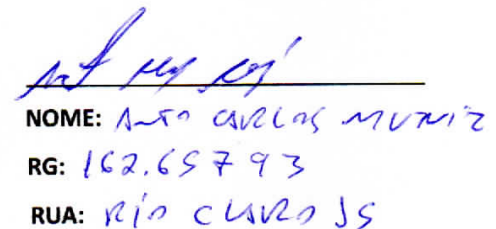 NOME: ANTO CARLOS MUNIZ
RG: 162.65793
RUA: RIO CLARO 35